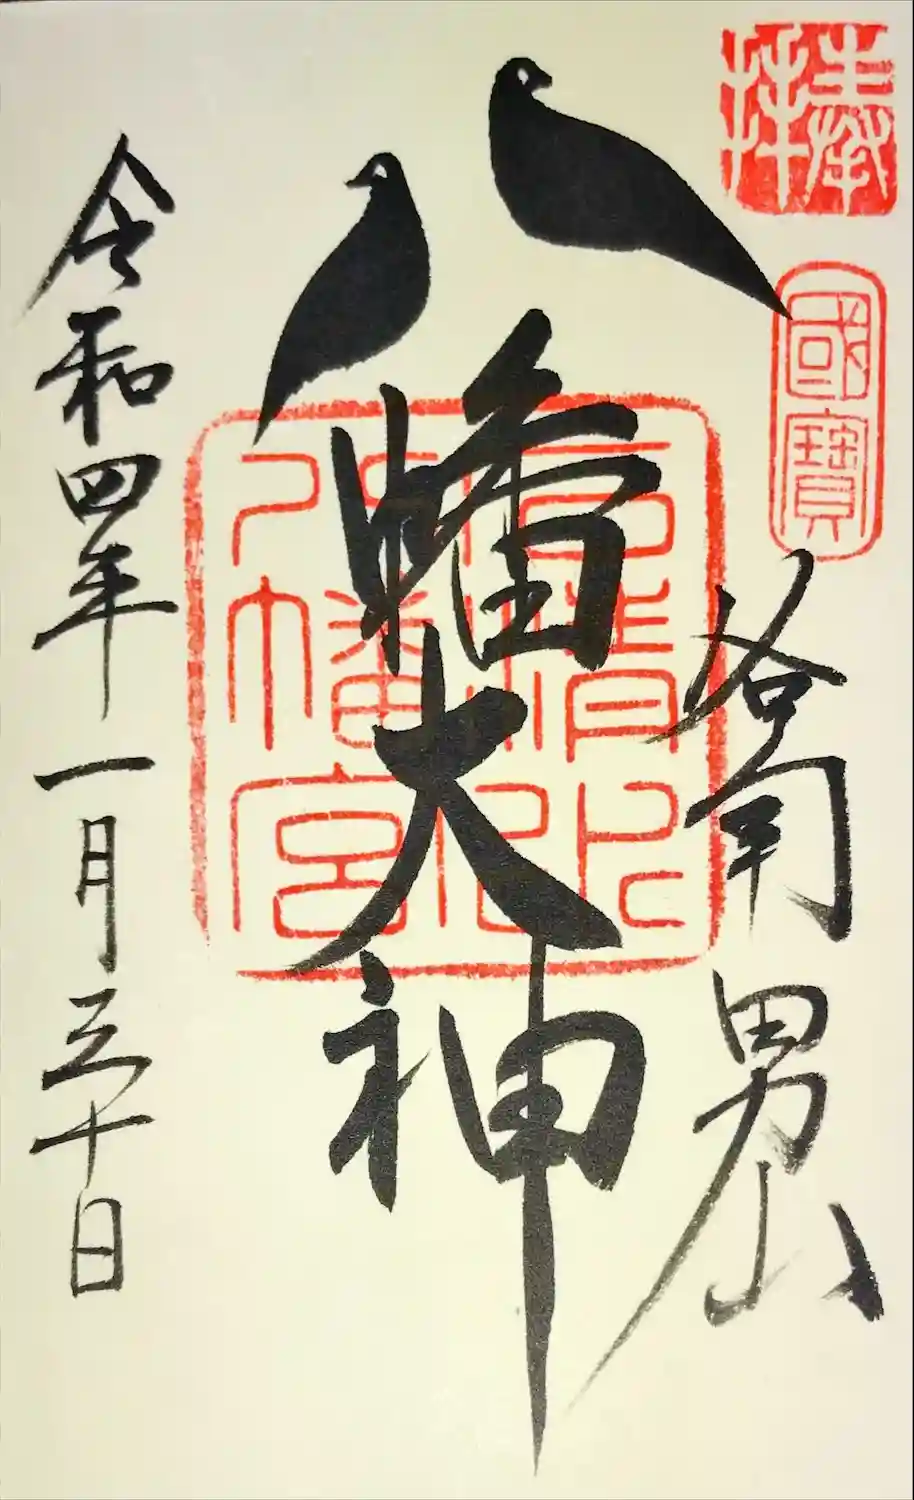 奉拝
國寶
洛南 男山
八幡大神
八幡宮
令和四年一月三十日